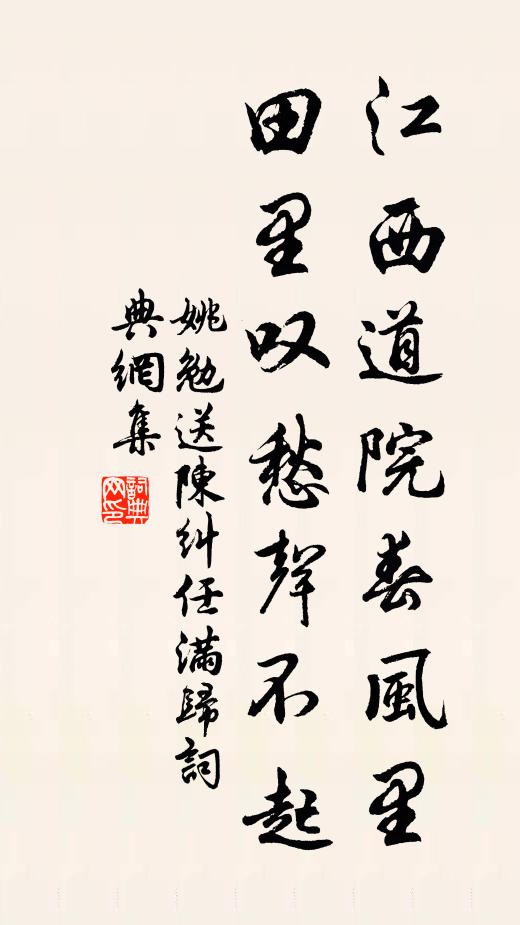 江西道院春風里
田里叹愁聲不起
姚勉送陳糾任滿歸詞
典網集
詞典
网印